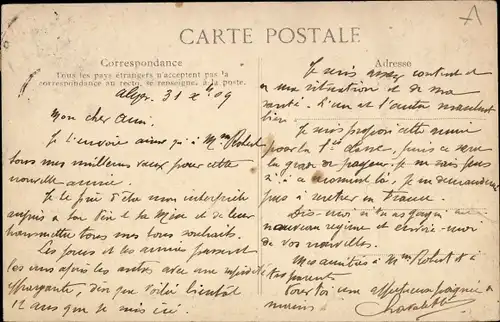 CARTE POSTALE
Correspondance
Tous les pays étrangers n'acceptent pas la
correspondance au recto, se renseigner à la poste.
Alger 31 Xbre 09
Mon cher ami.
Je t'envoie ainsi qu'à Mme Robert
tous mes meilleurs vœux pour cette
nouvelle année.
Je te prie d'être mon interprète
auprès à ton Père et ta Mère et de leur
transmettre tous mes bons souhaits.
Les jours et les années passent
les uns après les autres avec une rapidité
effrayante, dire que voilà bientôt
12 ans que je suis ici.
Adresse
Je suis assez content et
de ma situation et de ma
santé. L'un et l'autre marchent
bien.
Je suis proposé cette année
pour la 1ère classe, puis ce sera
le grade de payeur. Je ne sais pas
si à ce moment là, je ne demanderai
pas à rentrer en France.
Dis-moi si tu as gagné au
nouveau régime et écris-moi
de vos nouvelles.
Mes amitiés à Mme Robert et à
tes parents
Pour toi une affectueuse poignée